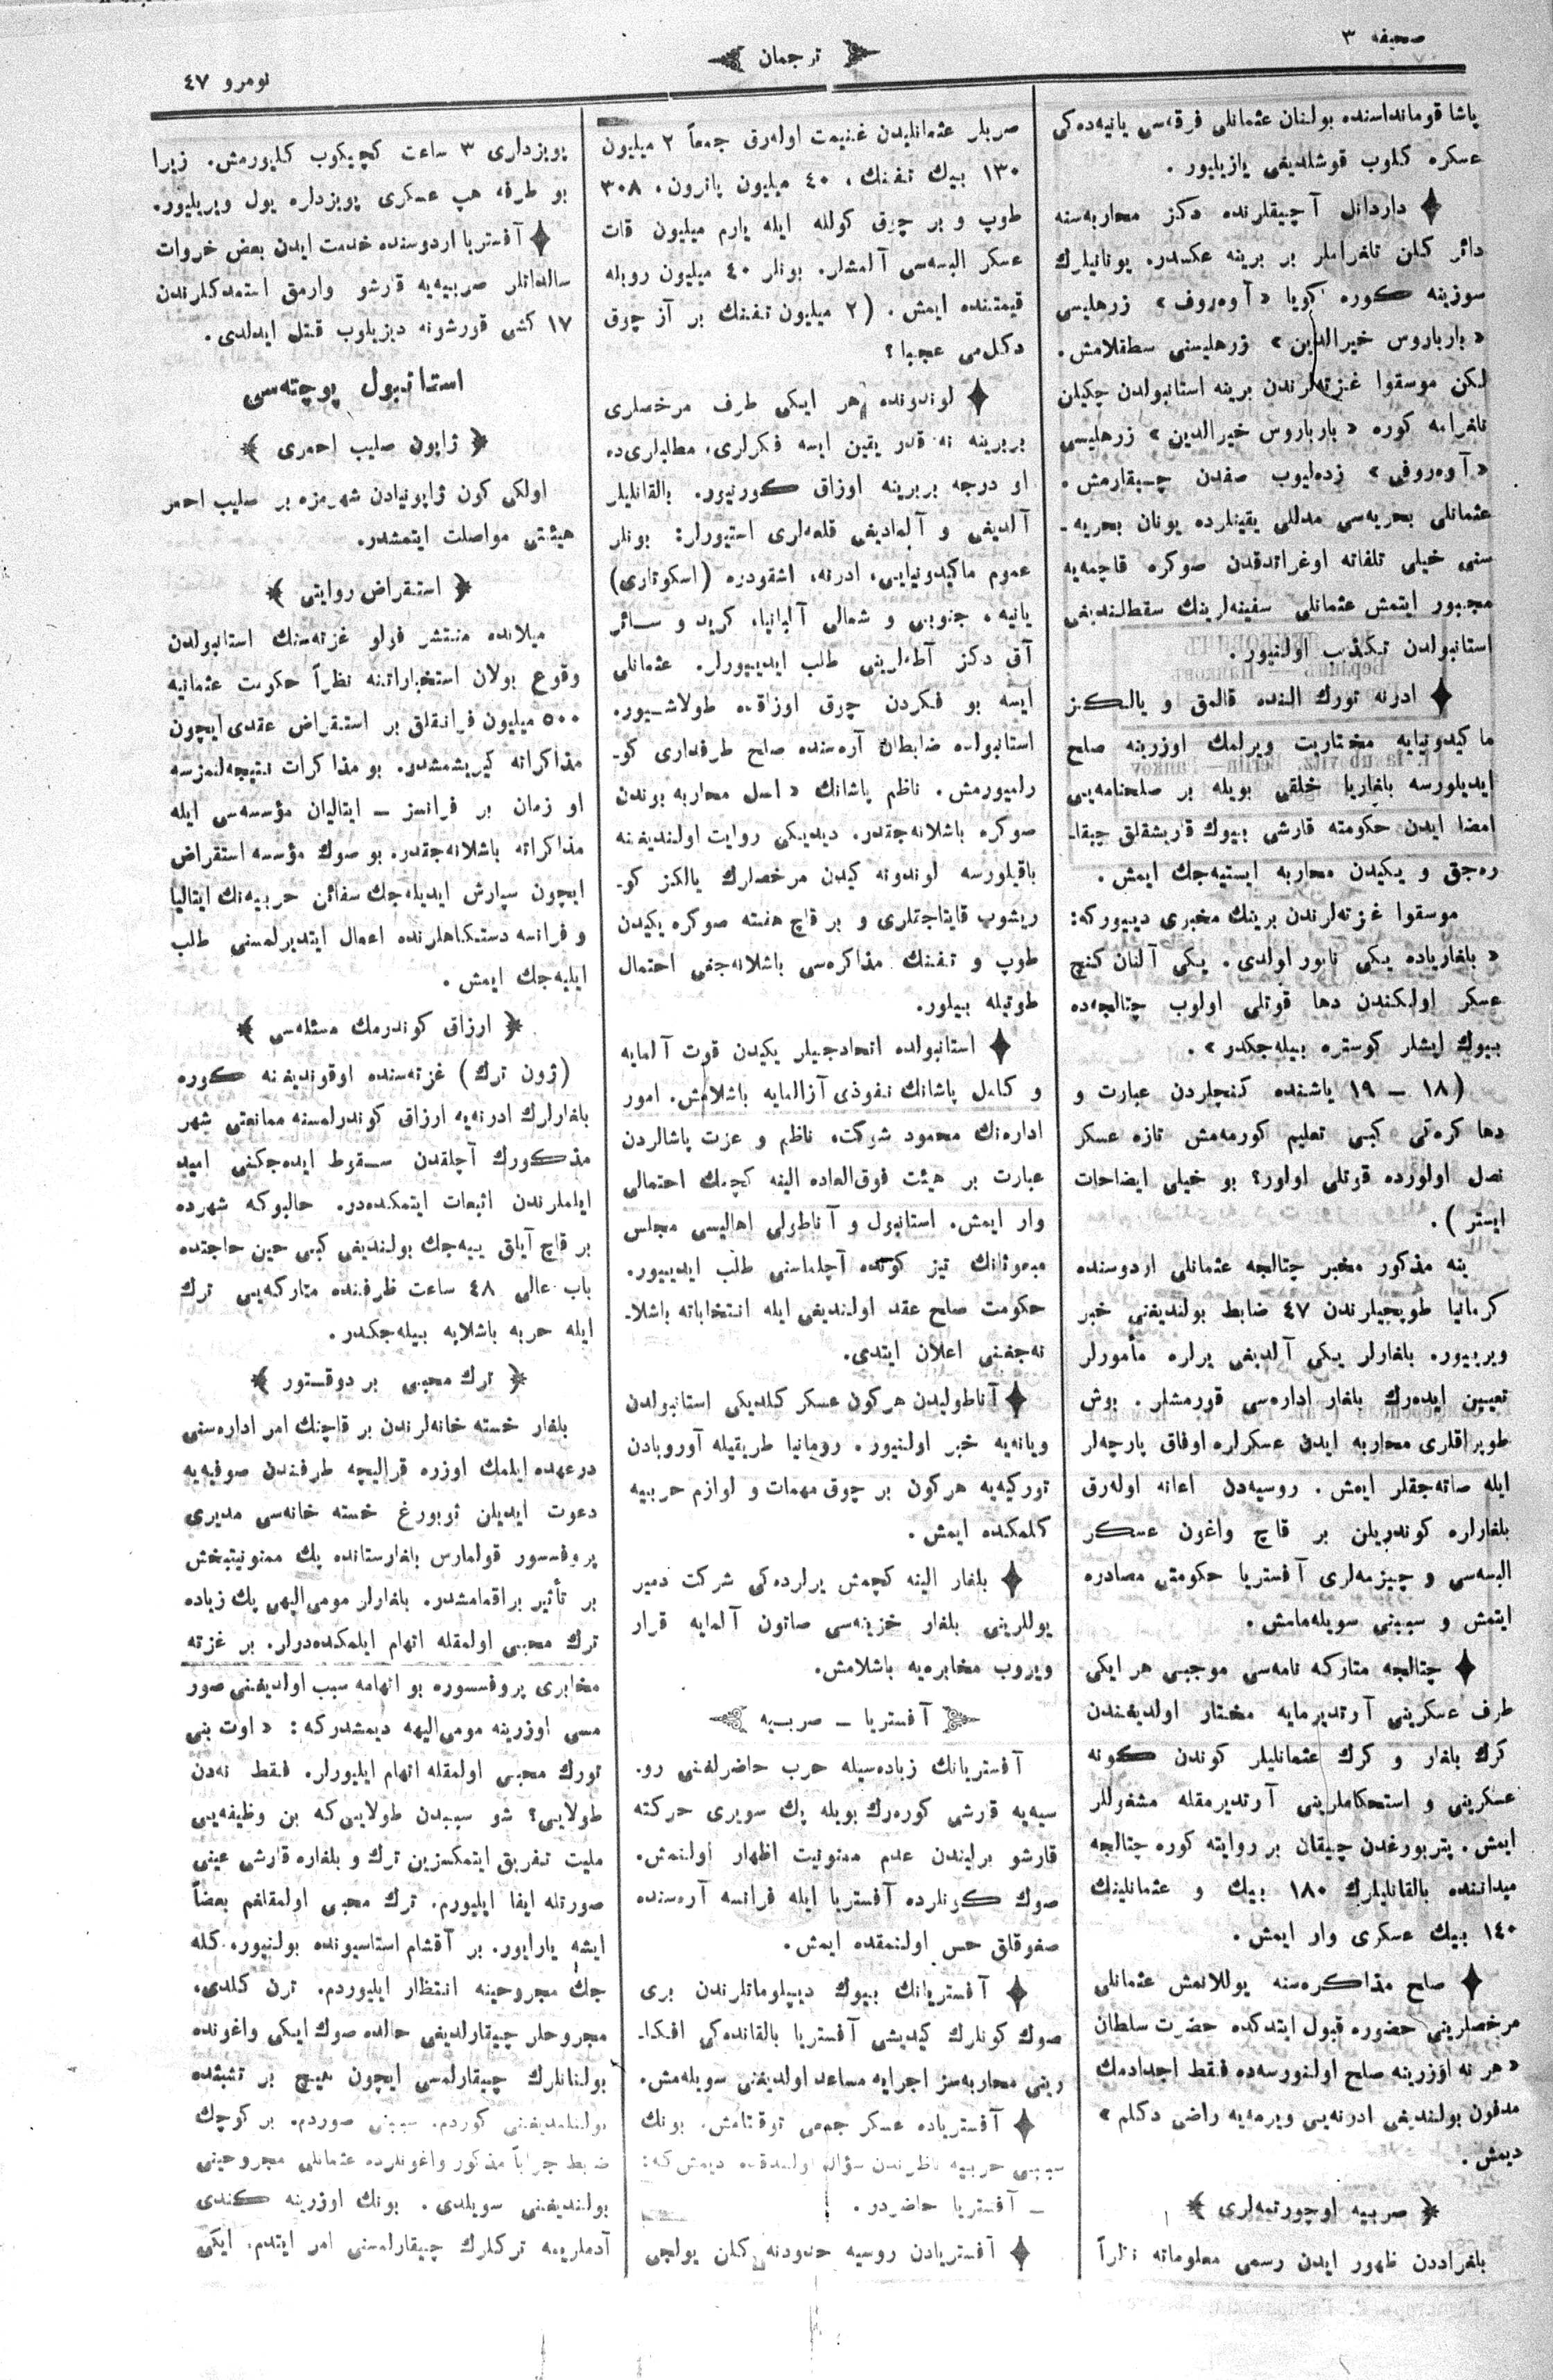 صحیفه ٣
ترجمان
نومرو ٤٧
پاشا قوماندەاسنده بولنان عثمانلی فرقەسی یانیەدەکی
عسکره کلوب قوشلدیغی یازیلیور .
داردانل آچیقلرنده دکز محاربەسنه
دائر کلن تلغراملر بر برینه عکسدر. یونانیلرك
سوزینه کوره کویا « آوەروف » زرهلیسی
« بارباروس خیرالدین » زرهلیسنی سطقلامش .
لکن موسقوا غزتەلرندن برینه استانبولدن چکیلن
تلغرامه کوره « بارباروس خیرالدین » زرهلیسی
« آوەروفی » زدەلیوب صفدن چیقارمش .
عثمانلی بحریەسی مدللی یقینلرده یونان بحریه ـ
سنی خیلی تلفاته اوغراتدقدن صوکره قاچمەیه
مجبور ایتمش عثمانلی سفینەلرینك سقطلندیغی
استانبولدن تکذیب اولنیور .
ادرنه تورك الندە قالمق و یالکز
ماکیدونیایه مختاریت ویرلمك اوزرینه صلح
ایدیلورسه بلغاریا خلقی بویله بر صلحنامەیی
امضا ایدن حکومته قارشی بیوك قاریشقلق چیقا۔
رەجق و یکیدن محاربه ایستیەجك ایمش .
موسقوا غزتەلرندن برینك مخبری دییورکه:
« بلغاریاده یکی تابور اولدی . یکی آلنان کنچ
عسکر اولکندن دها قوتلی اولوب چتالجەده
بیوك ایشلر کوستره بیلەجکدر » .
(١٨ ـ ١٩ یاشنده کنچلردن عبارت و
دها کرەکی کبی تعلیم کورمەمش تازه عسکر
نصل اولورده قوتلی اولور؟ بو خیلی ایضاحات
ایستر) .
ینه مذکور مخبر چتالجه عثمانلی اردوسنده
کرمانیا طوپجیلرندن ٤٧ ضابط بولندیغنی خبر
ویرییور. بلغارلر یکی آلدیغی یرلره مأمورلر
تعیین ایدەرك بلغار ادارەسی قورمشلر . بوش
طوپراقلری محاربه ایدن عسکرلره اوفاق پارچەلر
ایله صاتەجقلر ایمش . روسیەدن اعانه اولەرق
بلغارلره کوندریلن بر قاچ واغون عسکر
البسەسی و چیزمەلری آفستریا حکومتی مصادره
ایتمش و سببنی سویلەمامش .
چتالجه متارکه نامەسی موجبی هر ایکی
طرف عسکرینی آرتدیرمایه مختار اولدیغندن
کرك بلغار و کرك عثمانلیلر کوندن کونه
عسکرینی و استحکاملرینی آرتدیرمقله مشغوللر
ایمش . پتربورغدن چیقان بر روایته کوره چتالجه
میداننده بالقانلیلرك ١٨٠ بیك و عثمانلینك
١٤٠ بیك عسکری وار ایمش .
صلح مذاکرەسنه یوللانمش عثمانلی
مرخصلرینی حضوره قبول ایتدکده حضرت سلطان
« هر نه اوزرینه صلح اولنورسەده فقط اجدادمك
مدفون بولندیغی ادرنەیی ویرمەیه راضی دکلم »
دیمش .
صربیه اوچورتمەلری
بلغراددن ظهور ایدن رسمی معلوماته نظراً
صربلر عثمانلیدن غنیمت اولەرق جمعاً ٢ میلیون
١٣٠ بیك تفنك، ٤٠ میلیون پاترون، ٣٠٨
طوپ و بر چوق کولله ایله یارم میلیون قات
عسکر البسەسی آلمشلر. بونلر ٤٠ میلیون روبله
قیمتنده ایمش . (٢ میلیون تفنك بر آز چوق
دکلمی عجبا؟
لوندونده هر ایکی طرف مرخصلری
بربرینه نه قدر یقین ایسه فکرلری، مطلبلری‌ده
او درجه بربرینه اوزاق کورنیور. بالقانلیلر
آلدیغی و آلمادیغی قلعەلری استیورلر: بونلر
عموم ماکیدونیایی، ادرنه، اشقودره (اسکوتاری)
یانیه، جنوبی و شمالی آلبانیا، کرید و سائر
آق دکز آطەلرینی طلب ایدییورلر. عثمانلی
ایسه بو فکردن چوق اوزاقده طولاشیور.
استانبولده ضابطان آرەسنده صلح طرفداری کو۔
رلمیورمش . ناظم پاشانك « اصل محاربه بوندن
صوکره باشلانەجقدر. دیدیکی روایت اولندیغنه
باقیلورسه لوندونه کیدن مرخصلرك یالکز کو۔
ریشوب قایتاجقلری و بر قاچ هفته صوکره یکیدن
طوپ و تفنك مذاکرەسی باشلانەجغی احتمال
طوتیله بیلور.
استانبولده اتحادجیلر یکیدن قوت آلمایه
و کامل پاشانك نفوذی آزالمایه باشلامش. امور
ادارەنك محمود شوکت، ناظم و عزت پاشالردن
عبارت بر هیئت فوق‌العاده الینه کچمك احتمالی
وار ایمش. استانبول و آناطولی اهالیسی مجلس
مبعوثانك تیز کونده آچلماسنی طلب ایدییور.
حکومت صلح عقد اولندیغی ایله انتخاباته باشلا۔
نەجغنی اعلان ایتدی.
آناطولیدن هرکون عسکر کلدیکی استانبولدن
ویانەیه خبر اولنیور. رومانیا طریقیله آوروپادن
تورکیەیه هرکون بر چوق مهمات و لوازم حربیه
کلمکده ایمش .
بلغار الینه کچمش یرلردەکی شرکت دمیر
یوللرینی بلغار خزینەسی صاتون آلمایه قرار
ویروب مخابرەیه باشلامش.
آفستریا ـ صربیه
آفستریانك زیادەسیله حرب حاضرلغنی رو۔
سیەیه قارشی کورەرك بویله پك سویری حرکته
قارشو برلیندن عدم ممنونیت اظهار اولنمش.
صوك کونلرده آفستریا ایله فرانسه آرەسنده
صغوقلق حس اولنمقده ایمش.
آفستریانك بیوك دیپلوماتلرندن بری
صوك کونلرك کیدیشی آفستریا بالقاندەکی افکا۔
رینی محاربەسز اجرایه مساعد اولدیغنی سویلەمش.
آفستریاده عسکر جمعی توقتامش. بونك
سببی حربیه ناظرندن سؤال اولندقده دیمش که:
ـ آفستریا حاضردر .
آفستریادن روسیه حدودنه کلن یولجی
پویزداری ٣ ساعت کچیکوب کلیورمش. زیرا
بو طرفه هپ عسکری پویزدلره یول ویریلیور.
آفستریا اردوسنده خدمت ایدن بعض خروات
سالداتلر صربیەیه قارشو وارمق استمدکلرندن
١٧ کشی قورشونه دیزیلوب قتل ایدلدی.
استانبول پوچتەسی
ژاپون صلیب احمری
اولکی کون ژاپونیادن شهرمزه بر صلیب احمر
هیئتی مواصلت ایتمشدر.
استقراض روایتی
میلانده منتشر غزتەسنك استانبولدن
وقوع بولان استخباراتنه نظراً حکومت عثمانیه
٥٠٠ میلیون فرانقلق بر استقراض عقدی ایچون
مذاکراته کیریشمشدر. بو مذاکرات نتیجەلنمزسه
او زمان بر فرانسز ـ ایتالیان مؤسسەسی ایله
مذاکراته باشلانەجقدر. بو صوك مؤسسه استقراض
ایچون سپارش ایدیلەجك سفائن حربیەنك ایتالیا
و فرانسه دستکاهلرنده اعمال ایتدیرلمسنی طلب
ایلیەجك ایمش .
ارزاق کوندرمك مسئلەسی
(ژون ترك) غزتەسنده اوقوندیغنه کوره
بلغارلرك ادرنەیه ارزاق کوندرلمسنه ممانعتی شهر
مذکورك آچلقدن سقوط ایدەجکنی امید
ایلملرندن انبعاث ایتمکدەدر. حالبوکه شهرده
بر قاچ آیلق ییەجك بولندیغی کبی حین حاجتده
باب عالی ٤٨ ساعت ظرفنده متارکەیی ترك
ایله حربه باشلایه بیلەجکدر.
ترك محبی بر دوقتور
بلغار خسته خانەلرندن بر قاچنك امر ادارەسنی
درعهده ایلمك اوزره قرالیچه طرفندن صوفیەیه
دعوت ایدیلن خسته خانەسی مدیری
پروفسسور قولمارس بلغارستانده پك ممنونیتبخش
بر تأثیر براقمامشدر. بلغارلر مومی‌الیهی پك زیاده
ترك محبی اولمقله اتهام ایلمکدەدرلر. بر غزته
مخابری پروفسسوره بو اتهامه سبب اولدیغنی صور
مسی اوزرینه مومی‌الیهه دیمشدرکه: « اوت بنی
تورك محبی اولمقله اتهام ایلیورلر. فقط نەدن
طولایی؟ شو سببدن طولایی‌که بن وظیفەیی
ملیت تفریق ایتمکسزین ترك و بلغاره قارشی عینی
صورتله ایفا ایلیورم. ترك محبی اولمقلغم بعضاً
ایشه یارایور. بر آقشام استاسیونده بولنیور، کله
جك مجروحینه انتظار ایلیوردم. ترن کلدی.
مجروحلر چیقارلدیغی حالده صوك ایکی واغونده
بولنانلرك چیقارلمسی ایچون هیچ بر تشبثده
بولنلمدیغنی کوردم. سببنی صوردم. بر کوچك
ضابط جواباً مذکور واغونلرده عثمانلی مجروحینی
بولندیغنی سویلدی. بونك اوزرینه کندی
آدملریمه ترکلرك چیقارلمسنی امر ایتدم. ایکی